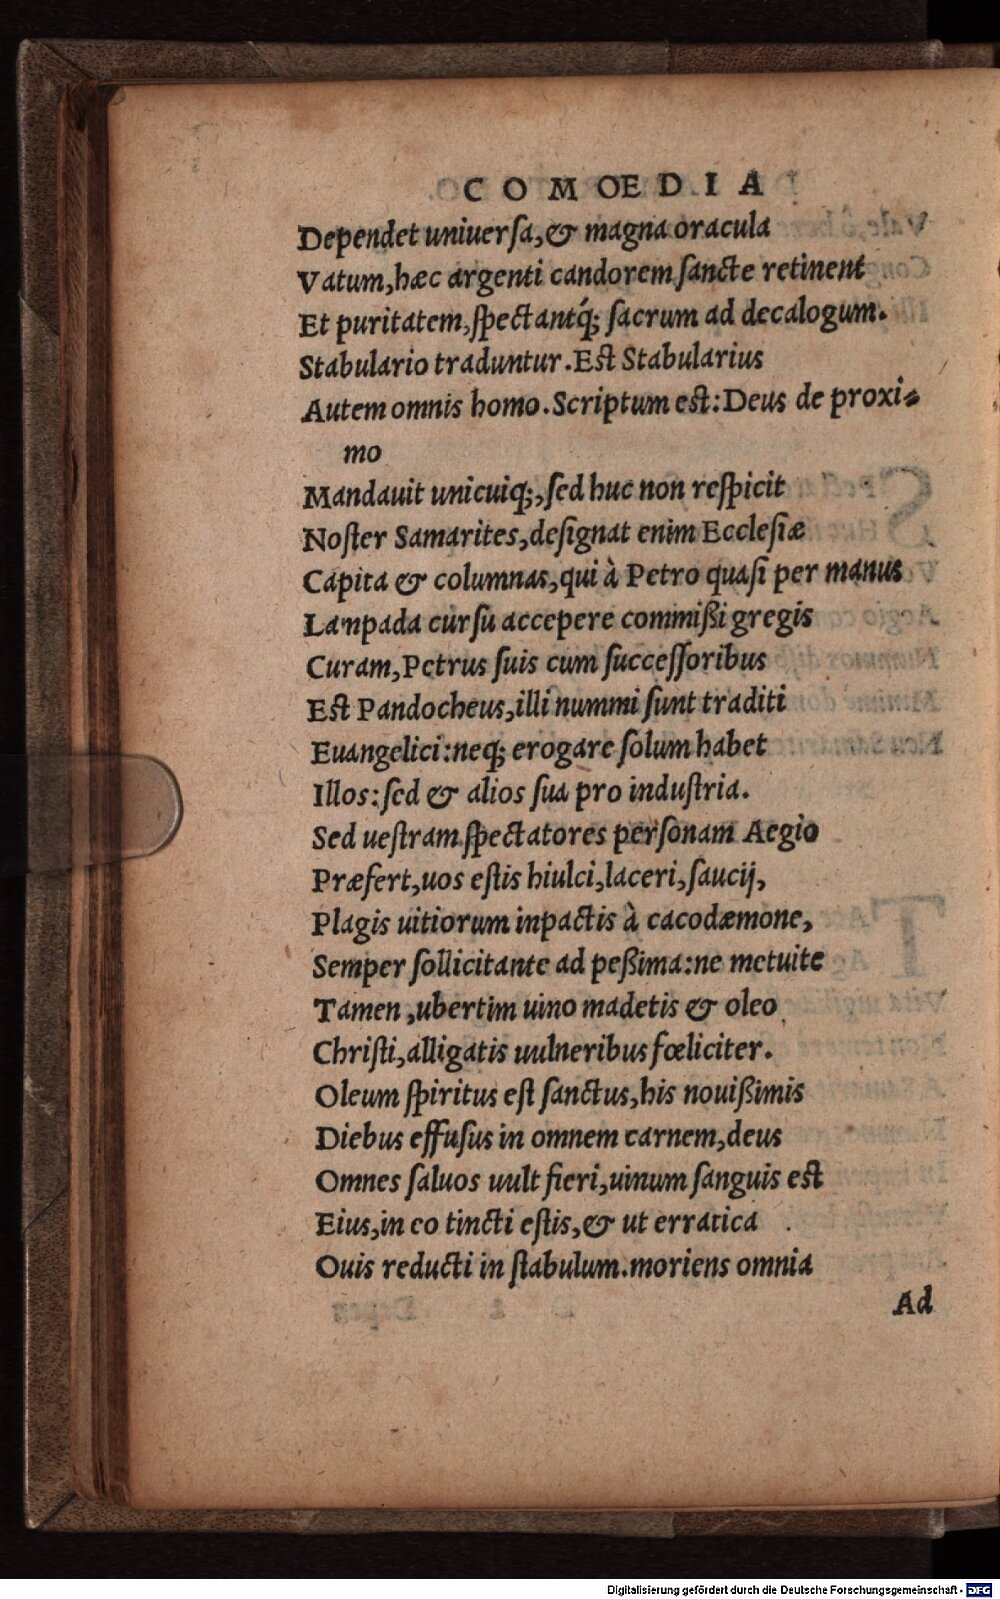 COMOEDIA
Dependet uniuersa, & magna oracula
Vatum, hæc argenti candorem sancte retinent
Et puritatem, spectantq́; sacrum ad decalogum.
Stabulario traduntur. Est Stabularius
Autem omnis homo. Scriptum est: Deus de proxi-
mo
Mandauit unicuiq;, sed huc non respicit
Noster Samarites, designat enim Ecclesiæ
Capita & columnas, qui à Petro quasi per manus
Lanpada cursu accepere commißi gregis
Curam, Petrus suis cum successoribus
Est Pandocheus, illi nummi sunt traditi
Euangelici: neq; erogare solum habet
Illos: sed & alios sua pro industria.
Sed uestram spectatores personam Aegio
Præfert, uos estis hiulci, laceri, saucij,
Plagis uitiorum inpactis à cacodæmone,
Semper sollicitante ad peßima: ne metuite
Tamen, ubertim uino madetis & oleo
Christi, alligatis uulneribus fœliciter.
Oleum spiritus est sanctus, his nouißimis
Diebus effusus in omnem carnem, deus
Omnes saluos uult fieri, uinum sanguis est
Eius, in eo tincti estis, & ut erratica
Ouis reducti in stabulum. moriens omnia
Ad
Digitalisierung gefördert durch die Deutsche Forschungsgemeinschaft - DFG